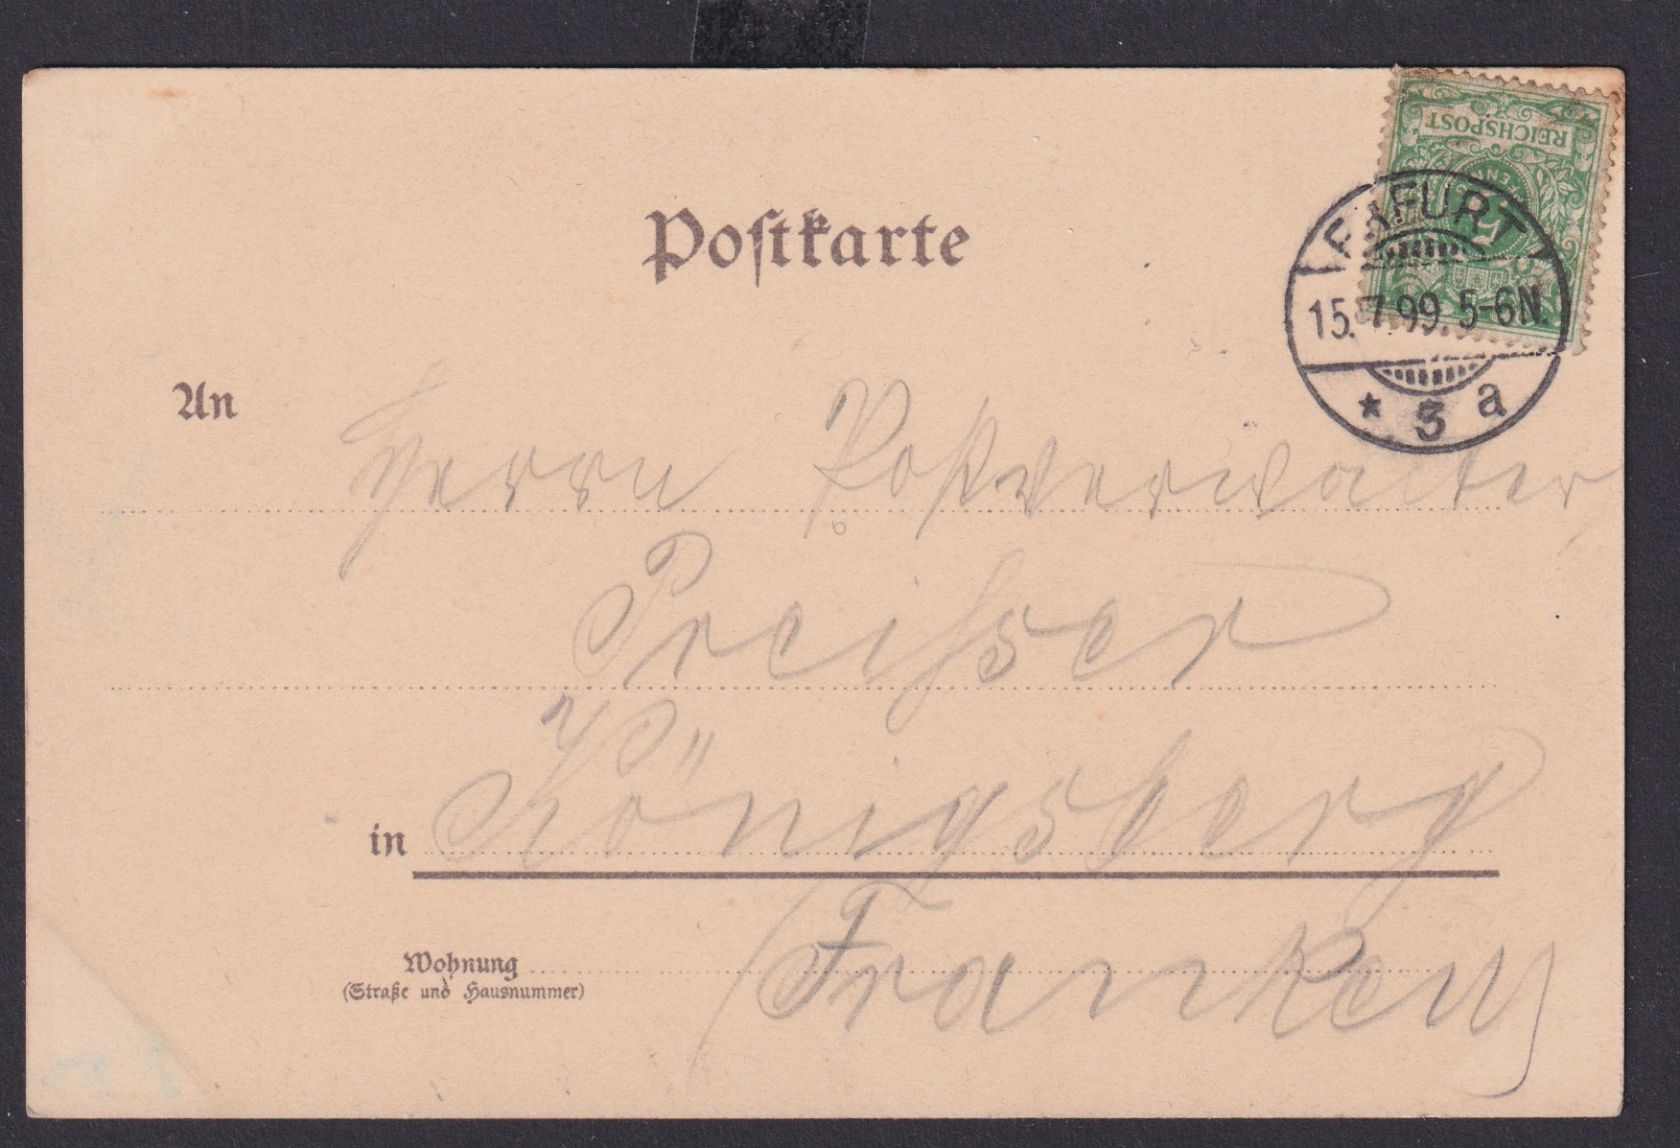 REICHSPOST
ERFURT
15.7.99. 5-6N.
* 3 a
Postkarte
An
Herrn Postverwalter
Preißer
in Königsberg
(Franken)
Wohnung
(Straße und Hausnummer)